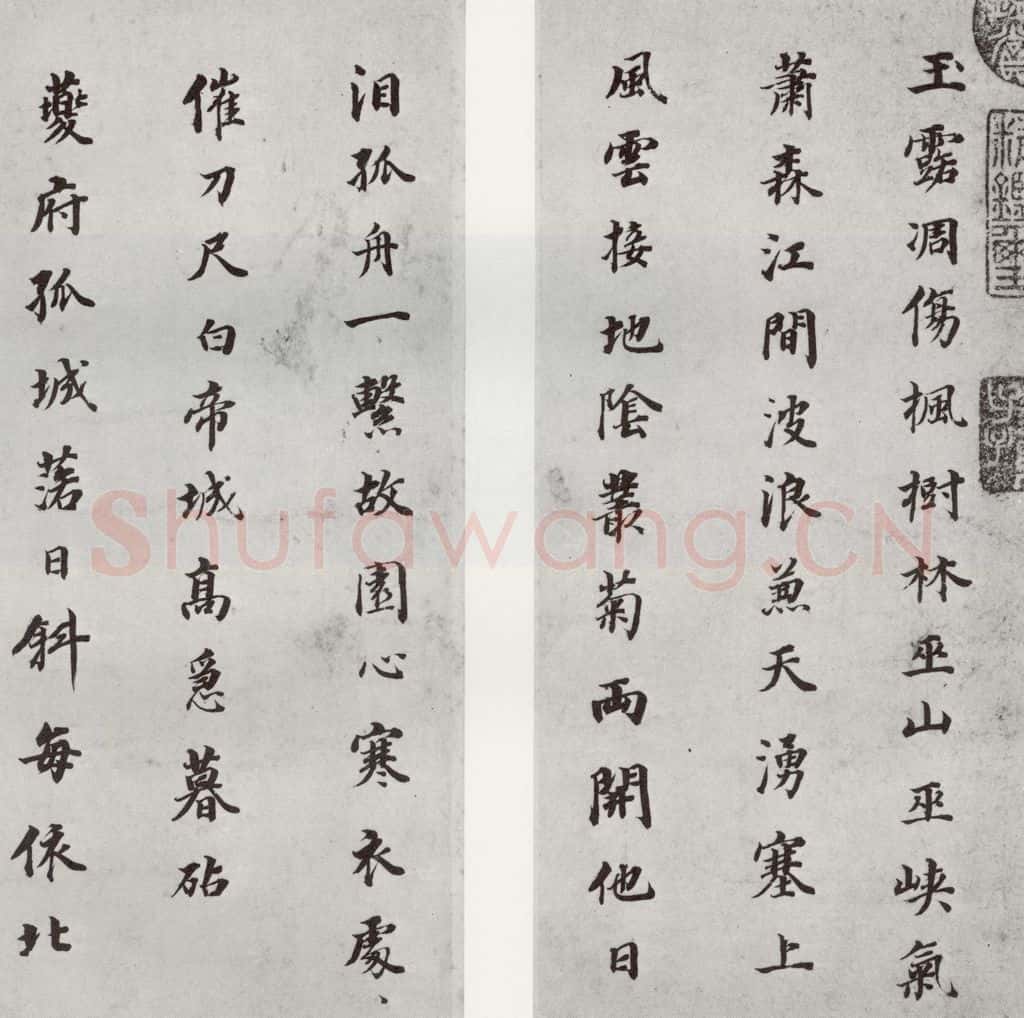 玉露凋傷楓樹林巫山巫峽氣
蕭森江間波浪兼天湧塞上
風雲接地陰叢菊兩開他日
泪孤舟一繫故園心寒衣處、
催刀尺白帝城高急暮砧
夔府孤城落日斜每依北
Shufawang.CN